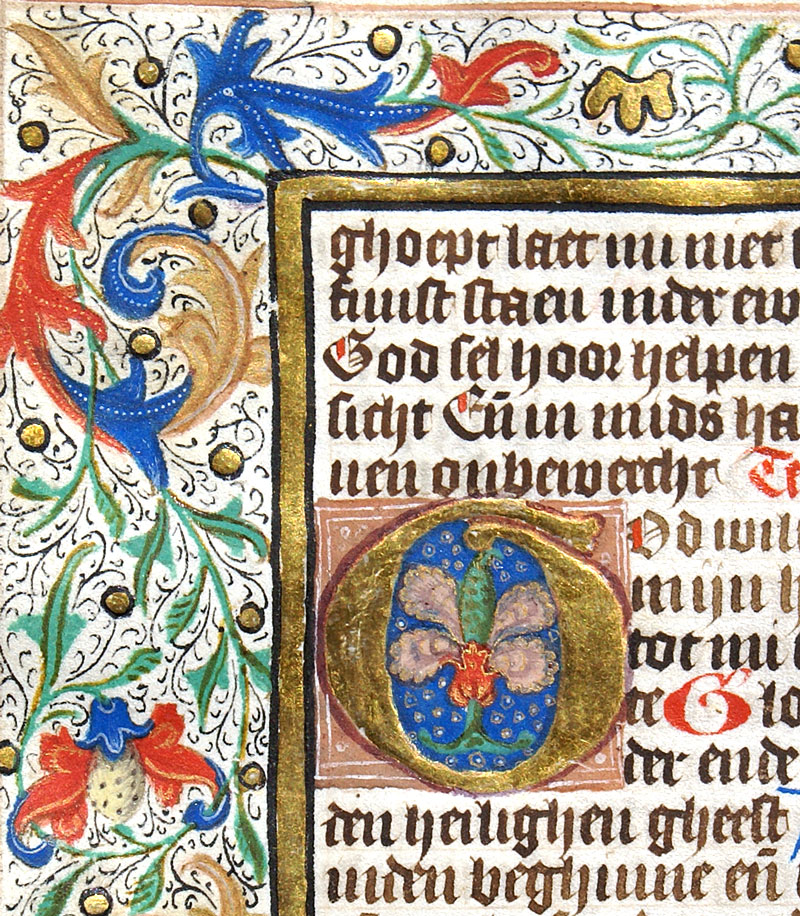 ghoept laet mi niet
fuust staen inder ew
God sel hoor helpen
sicht Eñ in mids ha
uen onbeweecht Te
God wil
mijn h
tot mi
te Glo
der ende
den heilighen gheest
inden beghinne eñ